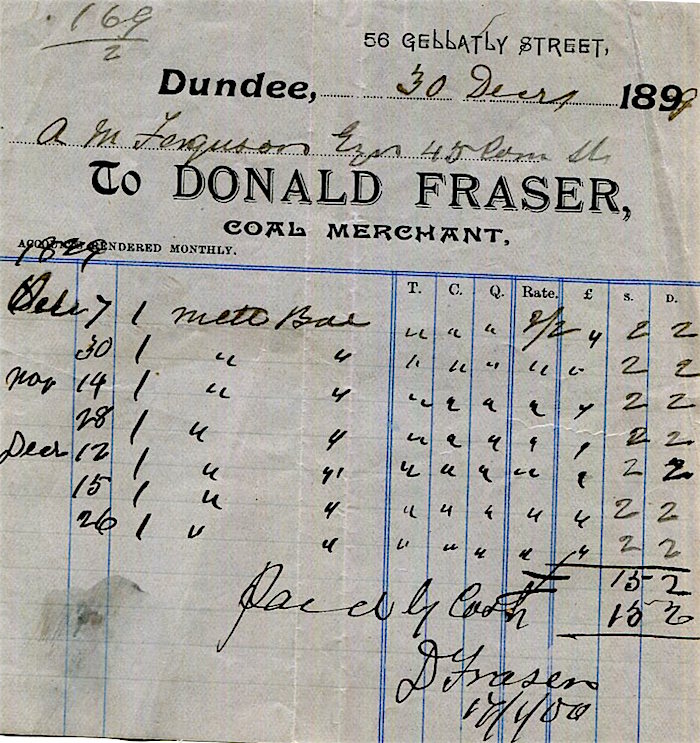 169
2
56 GELLATLY STREET,
Dundee, 30 Decr 1899
A M Ferguson Esqr 45 Com St
To DONALD FRASER,
COAL MERCHANT,
ACCOUNTS RENDERED MONTHLY.
1899
T. C. Q. Rate. £ s. D.
7 1 Bal " " " 2/2 " 2 2
30 1 " " " " " " " 2 2
Nov 14 1 " " " " " " " 2 2
28 1 " " " " " " " 2 2
Decr 12 1 " " " " " " " 2 2
15 1 " " " " " " " 2 2
26 1 " " " " " " " 2 2
15 2
Paid By Cash 15 2
D Fraser